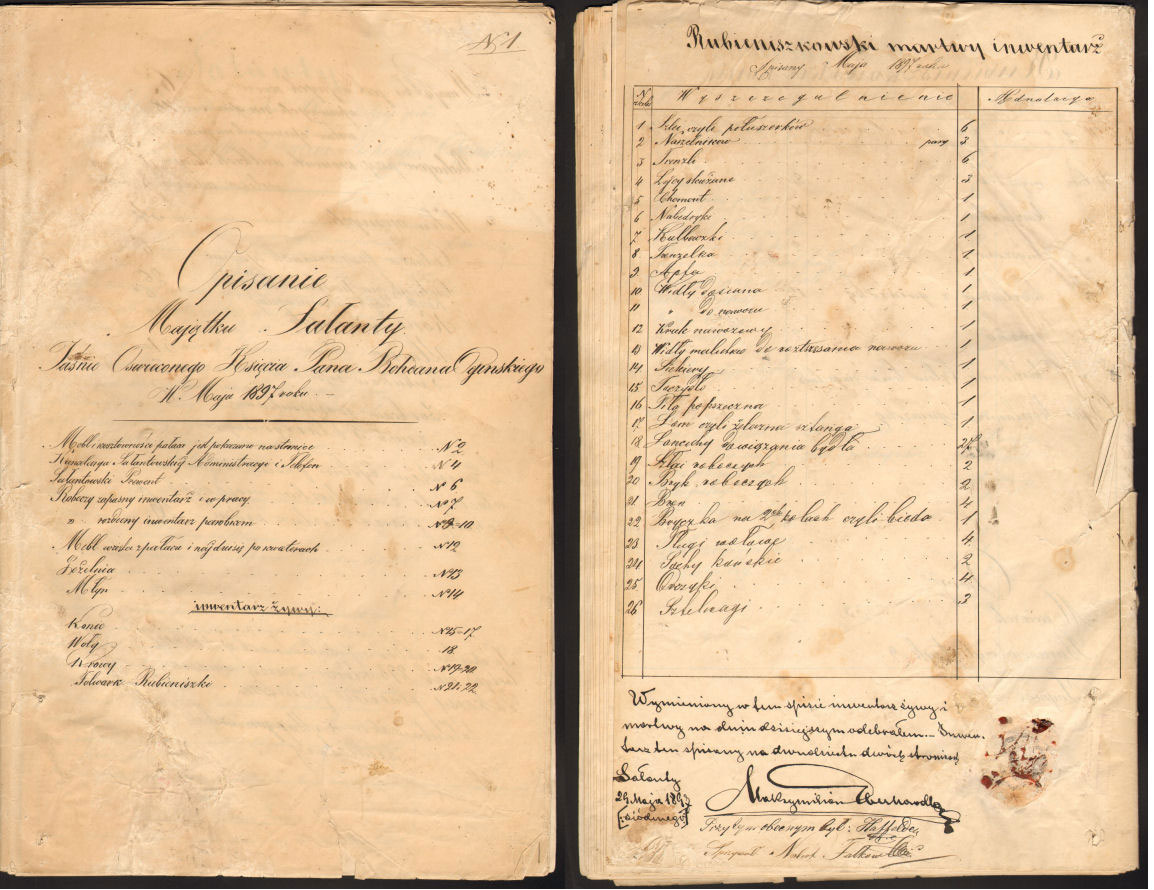 N 1
Opisanie
Majętku Sałanty
Jaśnie Oswieconego Księcia Pana Bohdana Oginskiego
Maja 1897 roku
Mebli i kosztowności pałacu jest pokazano na stronice N 2
Kancelarya Sałantowskiej Administracyi i Telefon N 4
Sałantowski N 6
Roboczy zapasny inwentarz i w pracy N 7
" rozdzony inwentarz parobkam N 9-10
Mebl z pałacu i po kwaterach N 12
N 13
Młyn N 14
inwentarz żywy:
Konie N 15-17
Woły 18
Krowy N 19-20
Folwark Rubieniszki N 21-22
Rubieniszkowski martwy inwentarz
Spisany Maja 1897 roku
N Wyszczegulnienie Adnotacya
1 Szlei czyli półszorków 6
2 Naszelników pary 3
3 Trenzli 6
4 Lejcy skużane 3
5 Chomont 1
6 Nabedryki 1
7 Kulbaczki 1
8 Trenzelka 1
9 1
10 Widły do siana 1
11 " do nawozu 1
12 Kruk nawozowy 1
13 Widły malutkie do roztrzesania nawozu 1
14 Siekiery 1
15 Toczydło 1
16 Piła popszeczna 1
17 Łom czyli żelazna sztanga 1
18 Łancuchy do wiązania bydła 27
19 Szlei roboczych 2
20 Bryk roboczych 2
21 Bron 4
22 Bryczka na 2ch kołach czyli bieda 1
23 Pługi 4
24 Sochy końskie 2
25 Orczyki 4
26 Sztelwagi 3
Wymieniony w tem spisie inwentarz żywy i
martwy na dniu dzisiejszym odebrałem. Inwen-
tarz ten spisany na dwudziestu dwóch stronicach
Sałanty
29 Maja 1897
[siódmego]
Maksymilian Eberhardt
Przytym obecnym był: